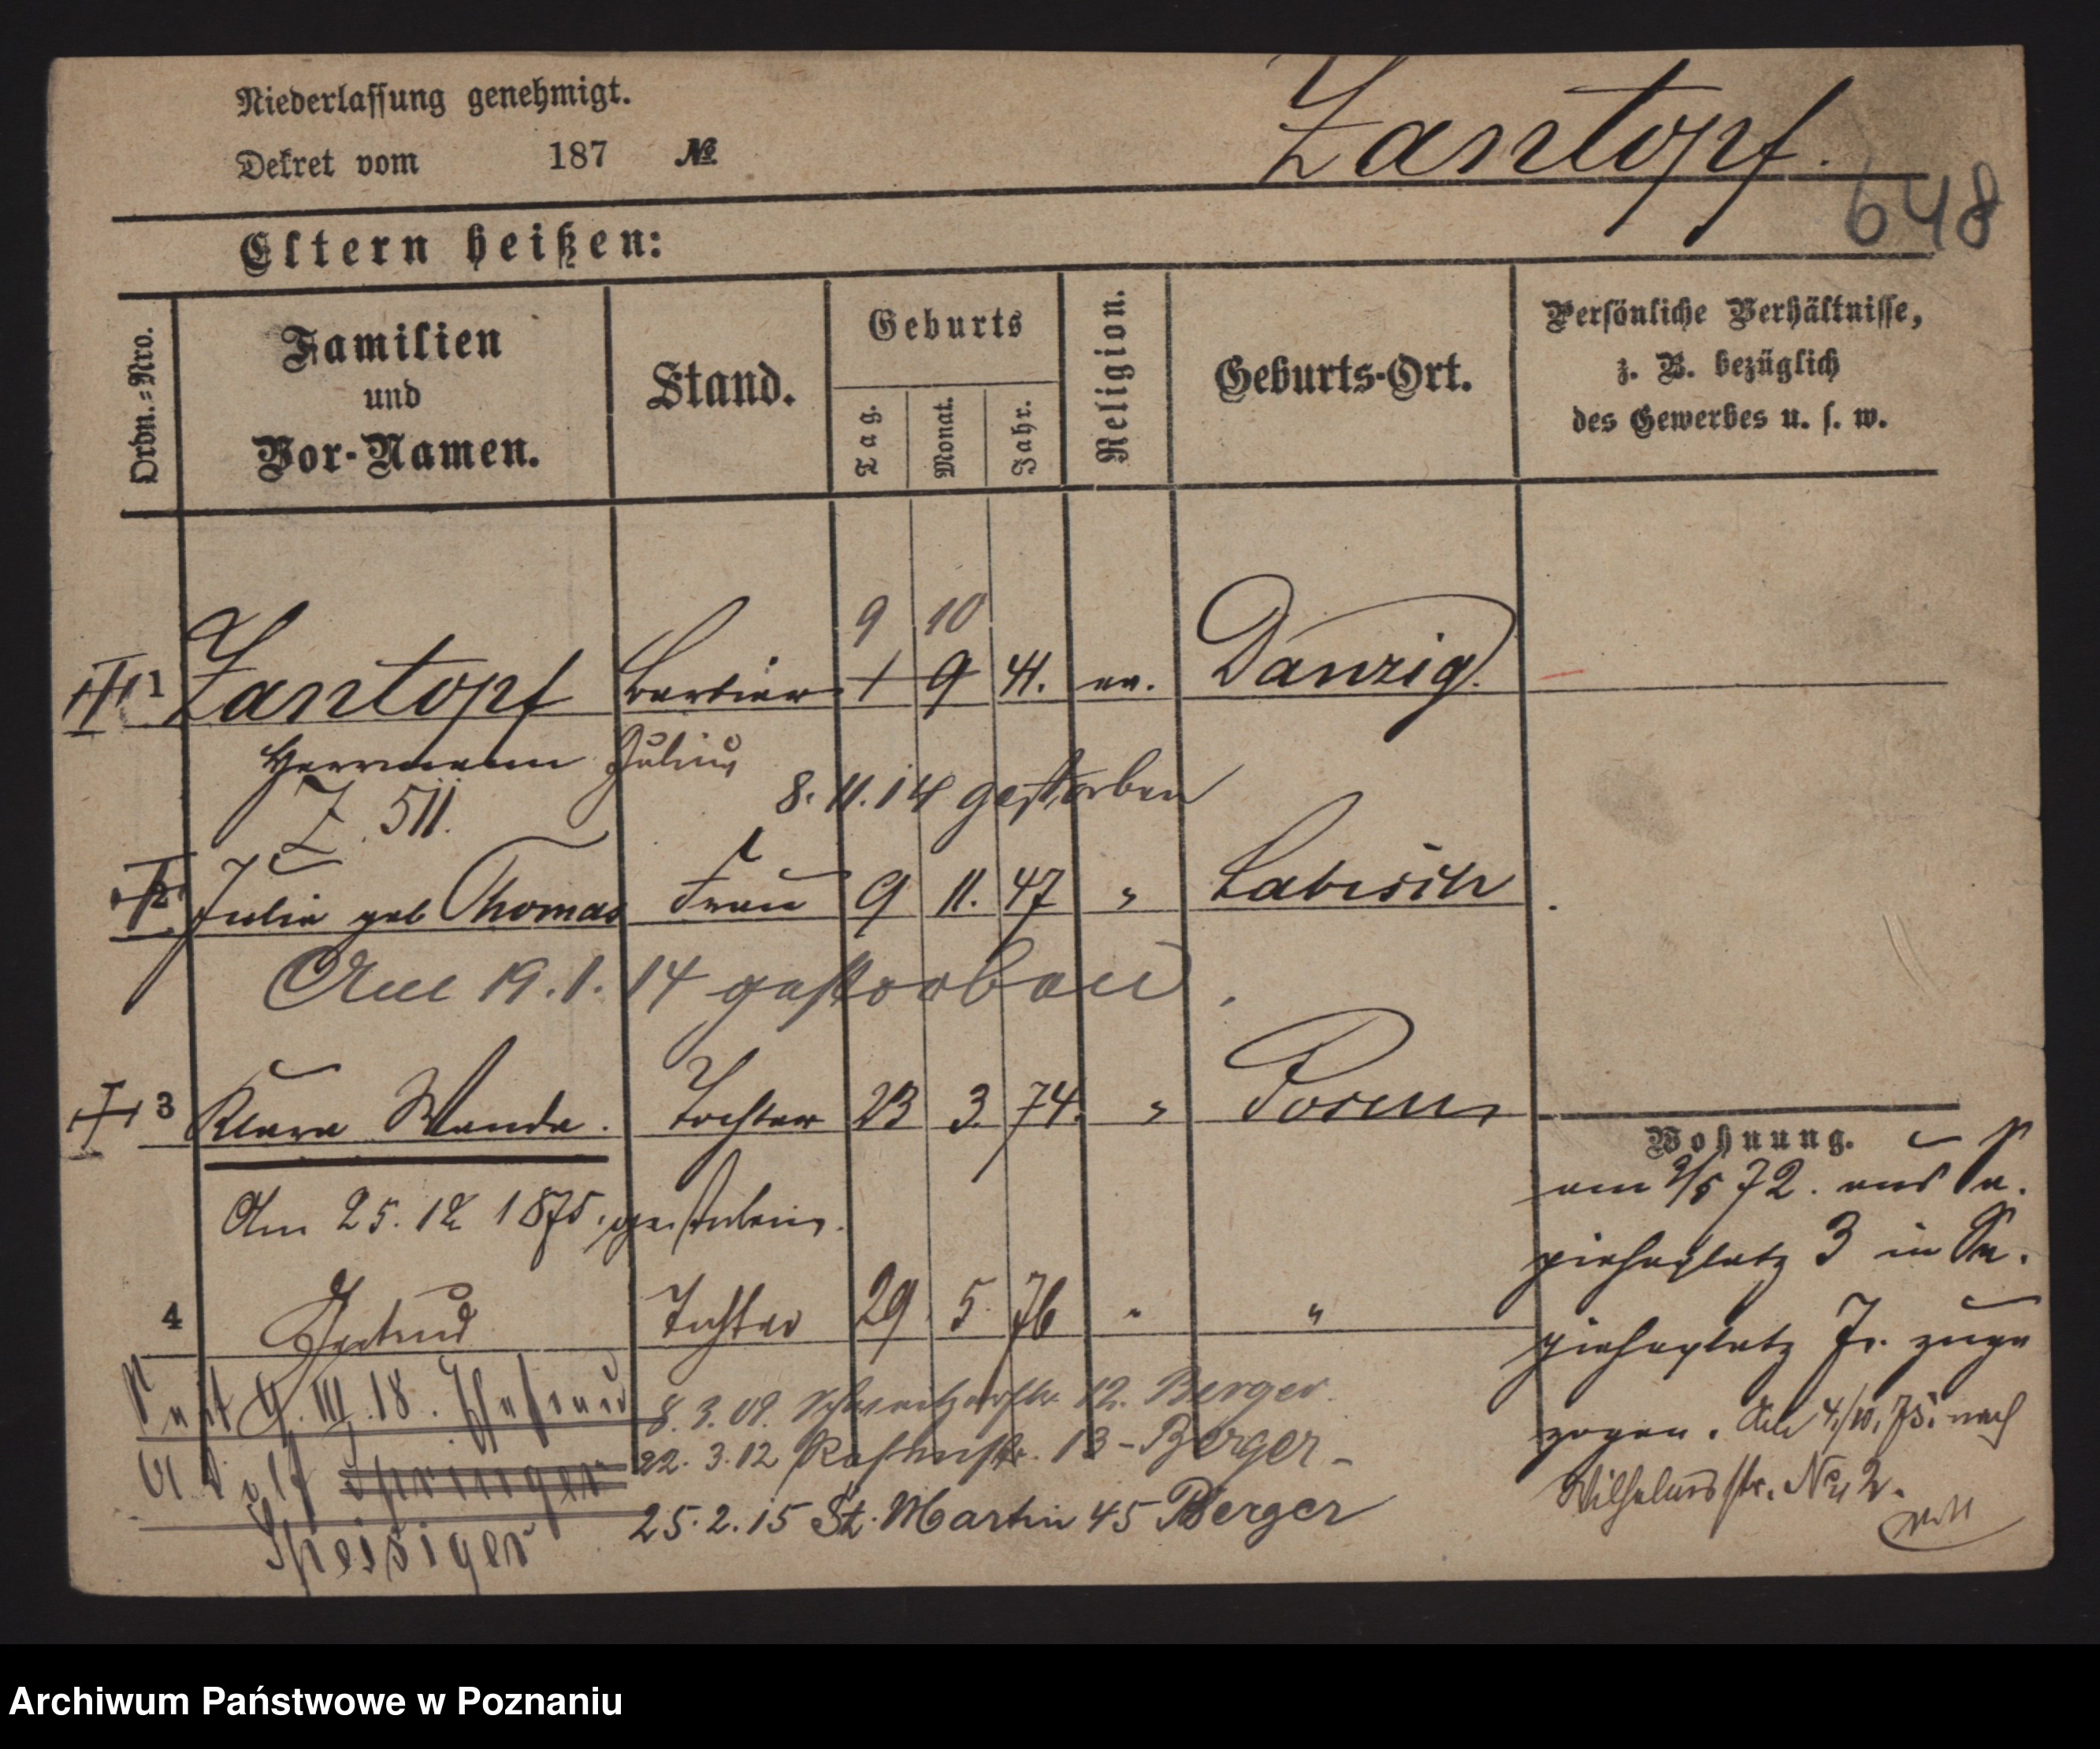 Niederlassung genehmigt.
Dekret vom 187 №
Zantopf.
648
Eltern heißen:
Ordn.-Nro.
Familien
und
Vor-Namen.
Stand.
Geburts
Tag.
Monat.
Jahr.
Religion.
Geburts-Ort.
Persönliche Verhältnisse,
z. B. bezüglich
des Gewerbes u. s. w.
9 10
1 Zantopf Barbier 1 9 41. ev. Danzig.
Herrmann Julius
8. 11. 14 gestorben
Z. 511.
2 Julie geb Thomas Frau 9 11. 47 " Labisch
Am 19. 1. 14 gestorben.
3 Klara Wanda. Tochter 23 3. 74. " Posen
Am 25. 12 1875. gestorben.
4 Gertrud Tochter 29. 5. 76 " "
Seit 9. III. 18. Ehefrau
Adolf Springer
Speisiger
8. 3. 09. 12. Berger.
22. 3. 12 13 - Berger -
25. 2. 15 St. Martin 45 Berger
Wohnung.
am 2/5 72. aus Sa.
piehaplatz 3 in Sa.
piehaplatz 7. zuge
zogen. Am 4./10. 75. nach
Wilhelmsstr. No 2.